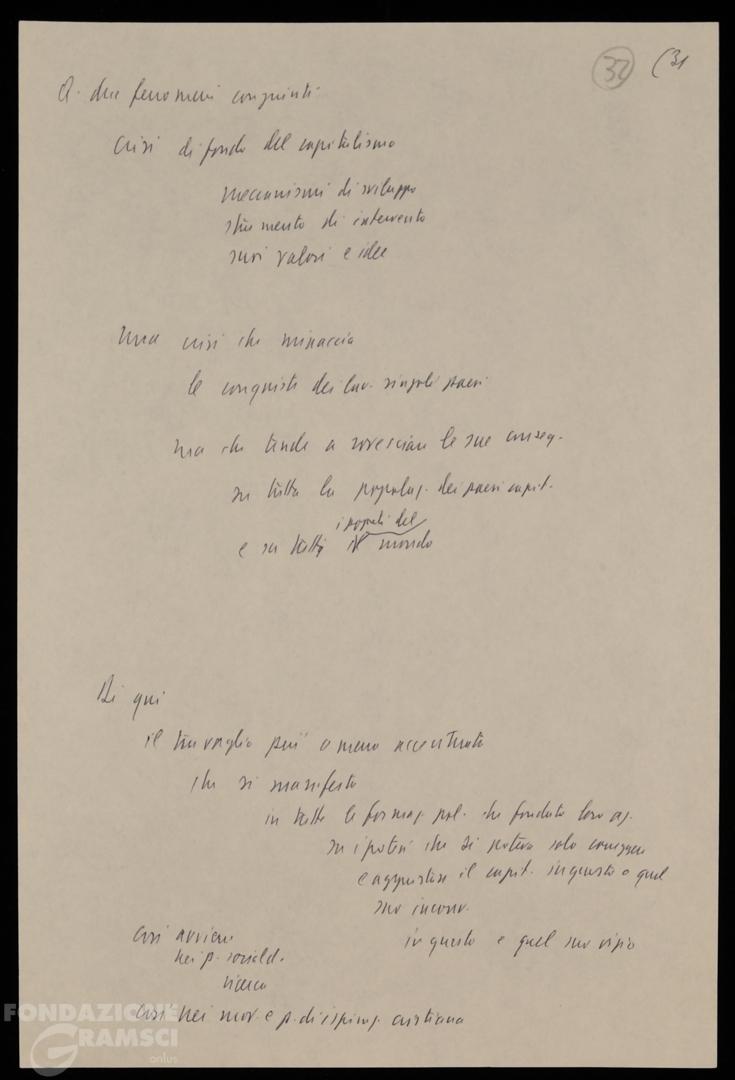 32 (31
2. due fenomeni congiunti
crisi di fondo del capitalismo
meccanismi di sviluppo
strumento di intervento
suoi valori e idee
una crisi che minaccia
le conquiste dei lav. singoli paesi
ma che tende a rovesciare le sue conseg.
su tutta la popolaz. dei paesi capit.
i popoli del
e su tutti il mondo
Di qui
il travaglio più o meno accentuato
che si manifesta
in tutte le formaz. pol. che fondato loro az.
su ipotesi che si poteva solo correggere
e aggiustare il capit. in questo o quel
suo
così avviene in questo e quel suo vizio
nei p. sociald.
ricerca
così nei mov. e p. di ispiraz. cristiana
FONDAZIONE
GRAMSCI
onlus